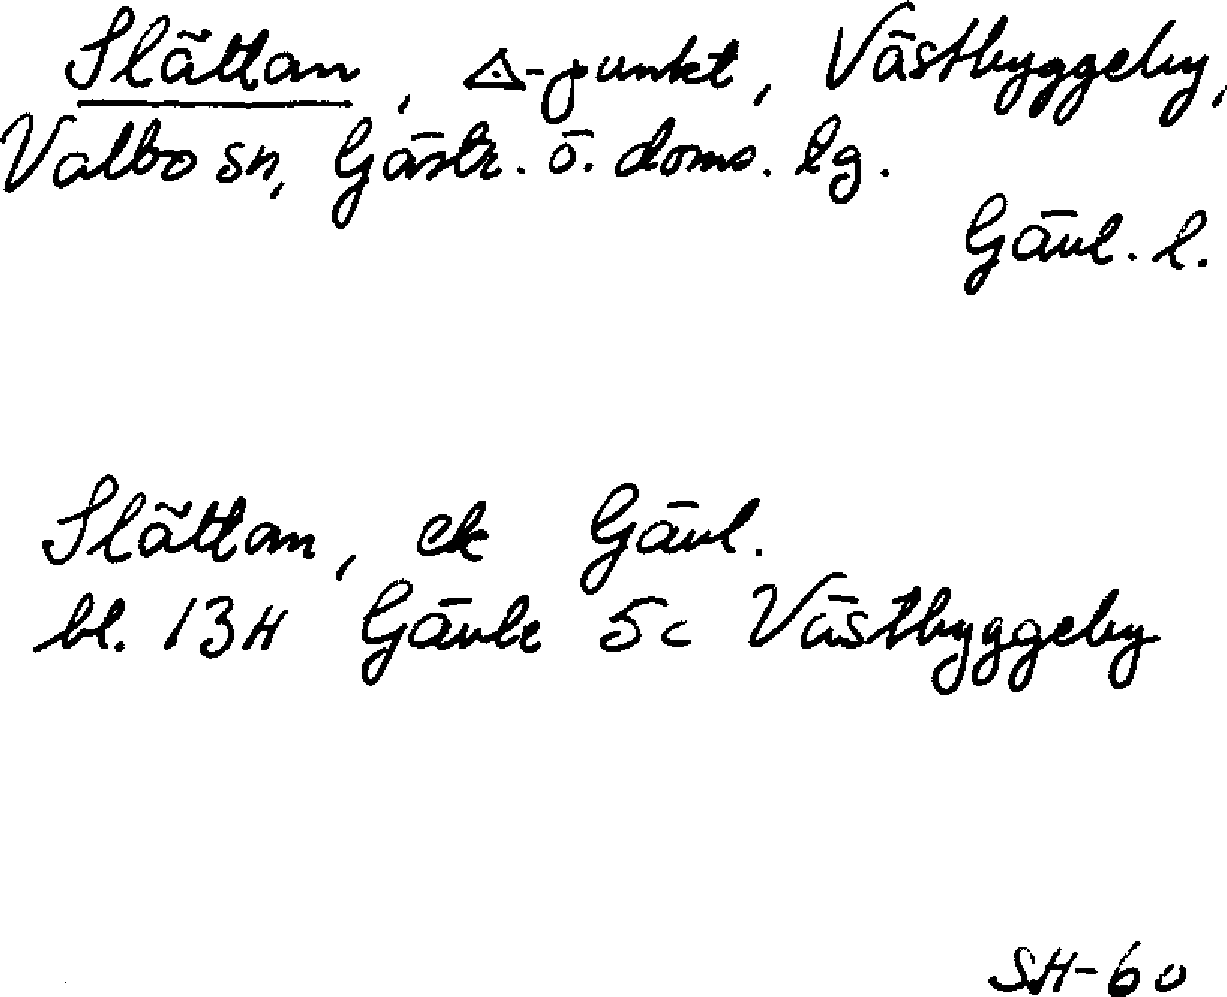 Slättan, △-punkt, Västbyggeby,
Valbo sn, Gästr. ö. doms. lg.
Gävl. l.
Slättan, ek Gävl.
bl. 13H Gävle 5c Västbyggeby
SH-60